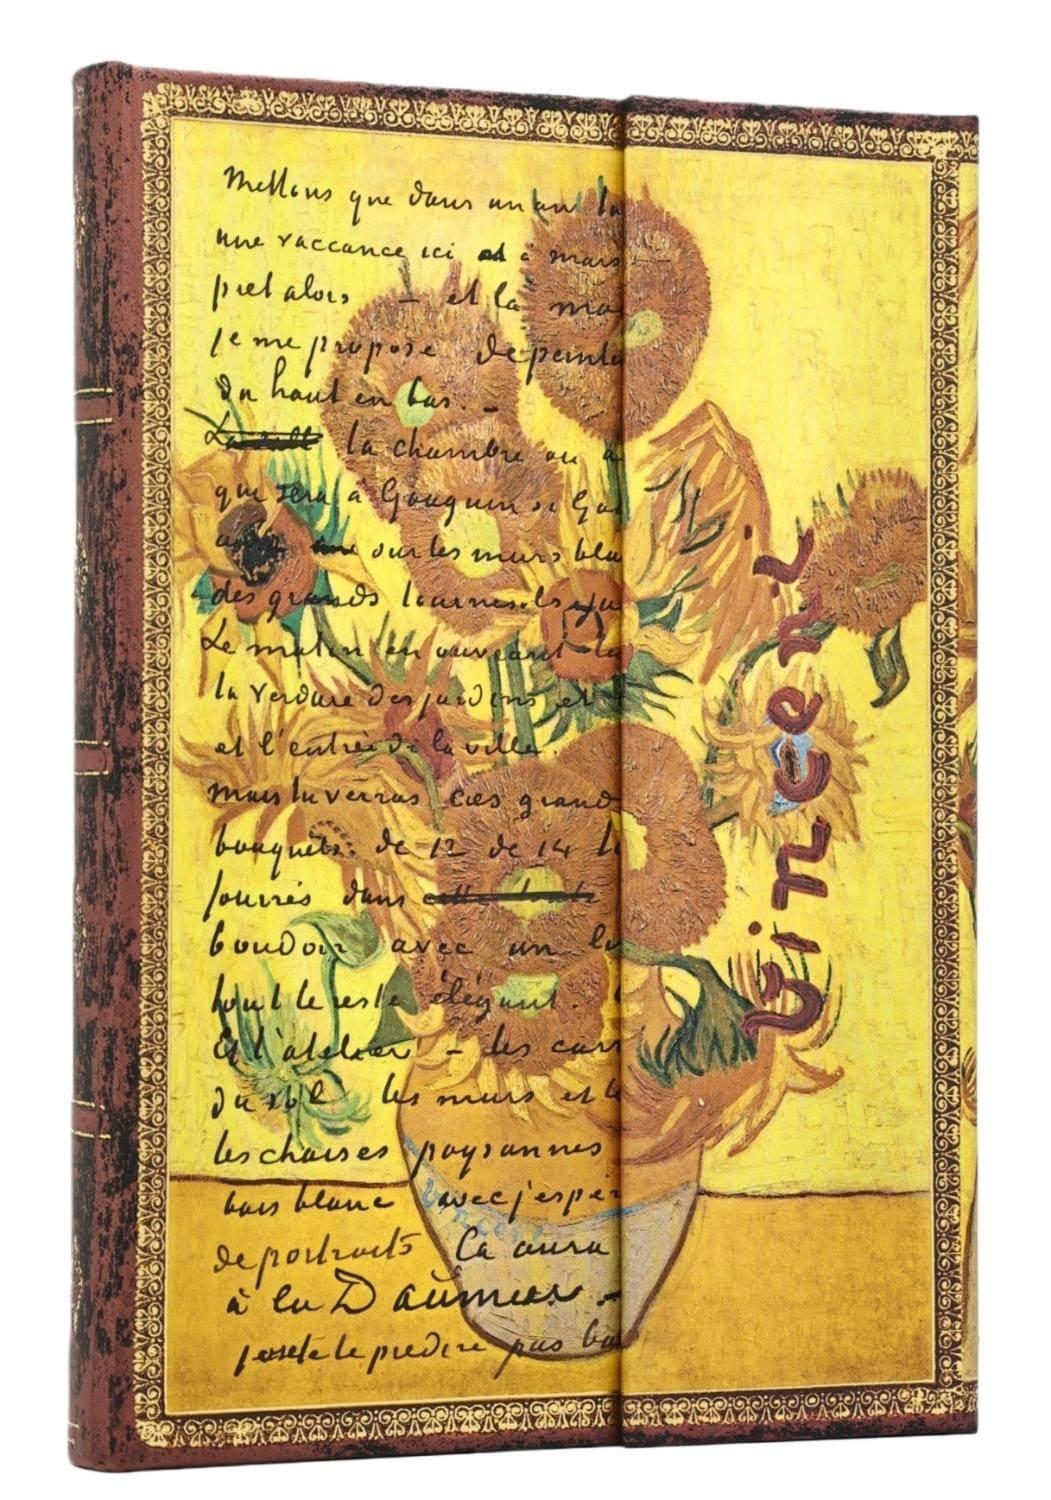 Mettons que dans un an tu
une vaccance ici et à mars
pret alors – et la mai
je me propose de peindre
du haut en bas. –
la chambre ou a
que sera à Gauguin si Gau
aura sur les murs bla
des grands tournesols jau
Le matin en ouvrant la
la verdure des jardins et
et l'entrée de la ville.
mais tu verras ces grand
bouquets. de 12 de 14 t
fourrés dans
boudoir avec un li
tout le reste élégant.
Et l'atelier – les carr
du sol les murs et le
les chaises paysannes
bois blanc avec j'espèr
de portraits Ca aura
à la Daumier –
je te le predire pas ba
Vincent
Vincent